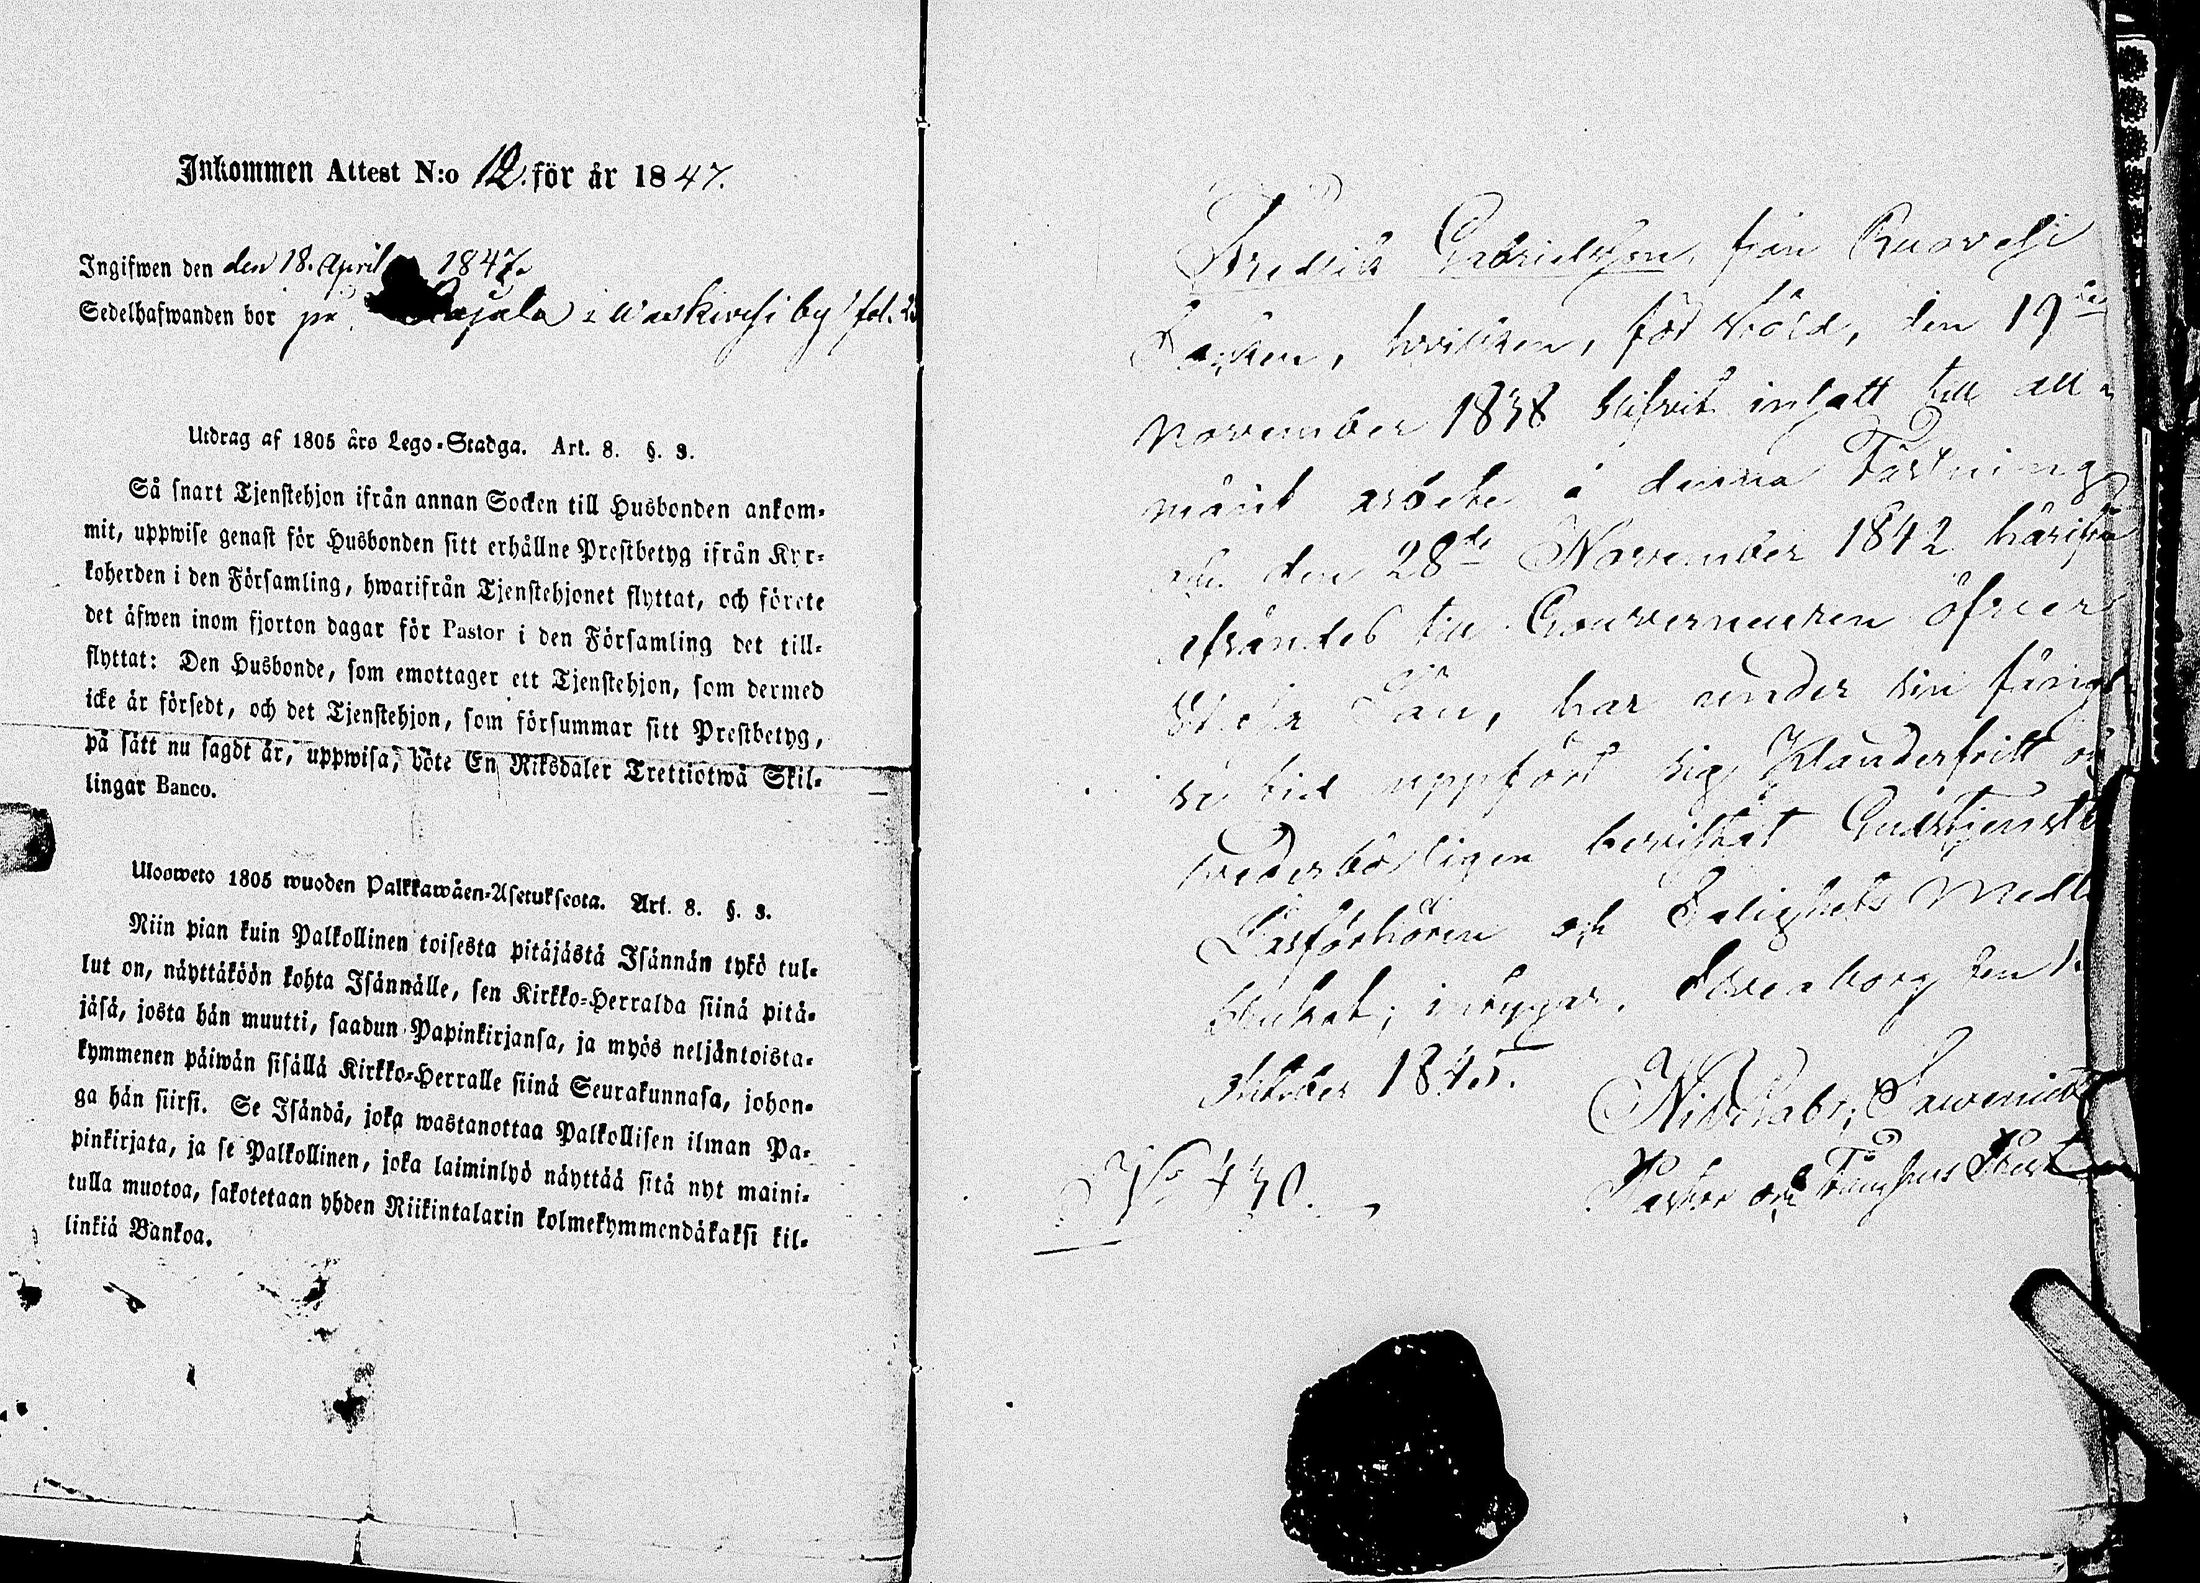 Inkommen Attest N:o 12. för år 1847.
Ingifwen den den 18. April 1847.
Sedelhafwanden bor på i Waskivesi by fol.
Utdrag af 1805 års Lego-Stadga. Art. 8. §. 3.
Så snart Tjenstehjon ifrån annan Socken till Husbonden ankom-
mit, uppwise genast för Husbonden sitt erhållne Prestbetyg ifrån Kyr-
koherden i den Församling, hwarifrån Tjenstehjonet flyttat, och förete
det äfwen inom fjorton dagar för Pastor i den Församling det till-
flyttat: Den Husbonde, som emottager ett Tjenstehjon, som dermed
icke är försedt, och det Tjenstehjon, som försummar sitt Prestbetyg,
på sätt nu sagdt är, uppwisa, böte En Riksdaler Trettiotwå Skil-
lingar Banco.
Ulosweto 1805 wuoden Palkkawäen-Asetuksesta. Art. 8. §. 3.
Niin pian kuin Palkollinen toisesta pitäjästä Isännän tykö tul-
lut on, näyttäköön kohta Isännälle, sen Kirkko-Herralda siinä pitä-
jäsä, josta hän muutti, saadun Papinkirjansa, ja myös neljäntoista-
kymmenen päiwän sisällä Kirkko-Herralle siinä Seurakunnasa, johon-
ga hän siirsi. Se Isändä, joka wastanottaa Palkollisen ilman Pa-
pinkirjata, ja se Palkollinen, joka laiminlyö näyttää sitä nyt maini-
tulla muotoa, sakotetaan yhden Riikintalarin kolmekymmendäkaksi kil-
linkiä Bankoa.
Fredrik Gabrielsson, från Ruovesi
Socken, hvilken, för stöld, den 19de
November 1838 blifvit insatt till all-
mänt arbete å denna Fästning
och den 28de November 1842 härifrån
afsändes till Gouverneuren öfver
St Län, har under sin fånge
se tid uppfört sig klanderfritt och
vederbörligen bevistat Gudstjenste
Läsförhören och Salighets Medlen
brukat; intygar. Sveaborg den 1.
Oktober 1845.
Pastor och
No 430.